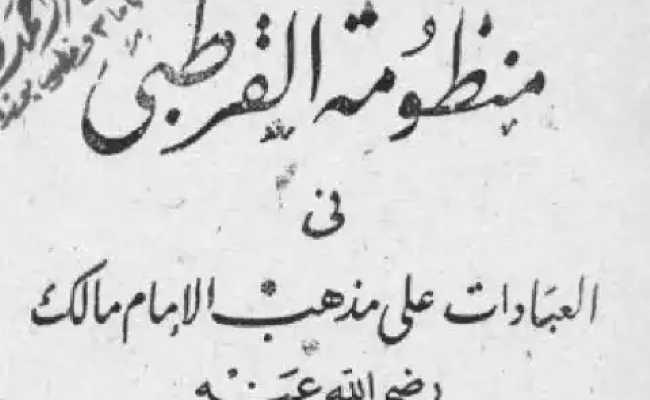 منظومة القرطبي
في
العبادات على مذهب الإمام مالك
رضي الله عنه